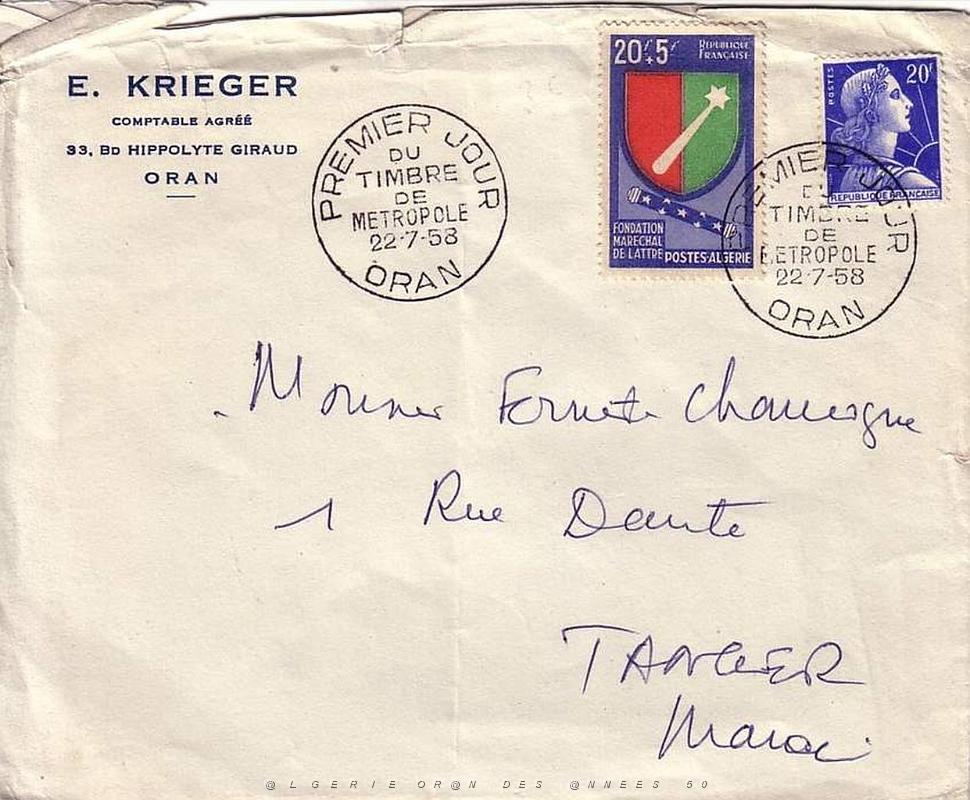 E. KRIEGER
COMPTABLE AGRÉÉ
33, BD HIPPOLYTE GIRAUD
ORAN
PREMIER JOUR
DU
TIMBRE
DE
METROPOLE
22-7-58
ORAN
20f+5f
RÉPUBLIQUE
FRANÇAISE
FONDATION
MARECHAL
DE LATTRE
POSTES-ALGERIE
POSTES
20f
REPUBLIQUE FRANÇAISE
PREMIER JOUR
DU
TIMBRE
DE
METROPOLE
22-7-58
ORAN
Monsieur
1 Rue Dante
TANGER
Maroc
@LGERIE OR@N DES @NNEES 50